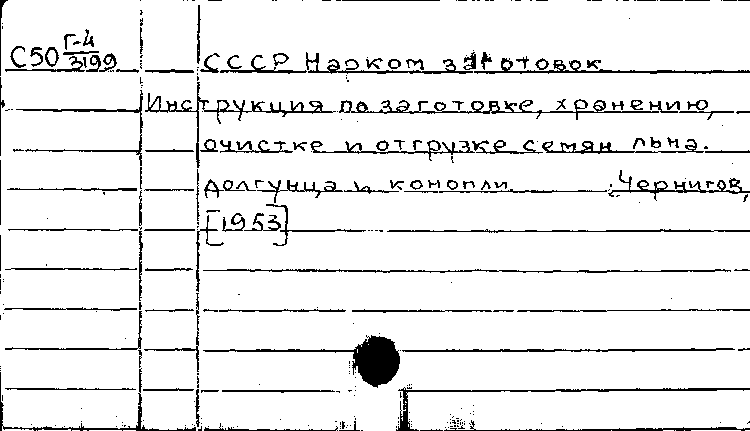 С50 Г-4/3199 СССР Нарком заготовок
Инструкция по заготовке, хранению,
очистке и отгрузке семян льна.
долгунца и конопли. Чернигов,
[1953]